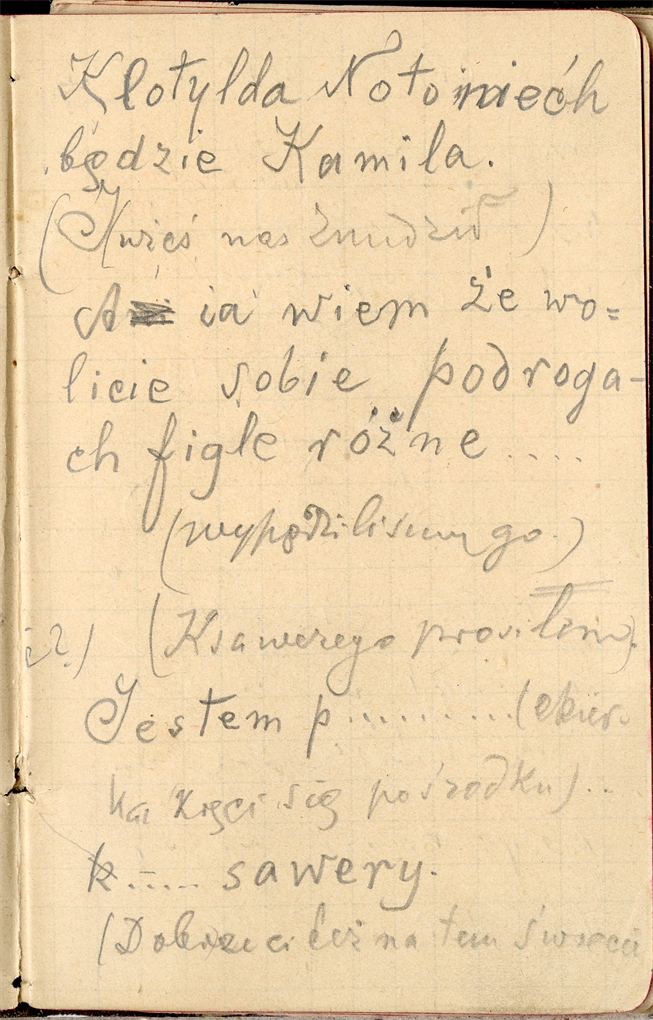 Klotylda No to niech
będzie Kamila.
(Kwieś nas znudził)
A ia wiem że wo=
licie sobie podroga-
ch figle różne .....
(wypędziliśmy go.)
(Ksawerego prosiłem).
Jestem p..........(ekier-
ka kręci się pośrodku)..
k..... sawery.
(Dobrze ci też na tem świecie